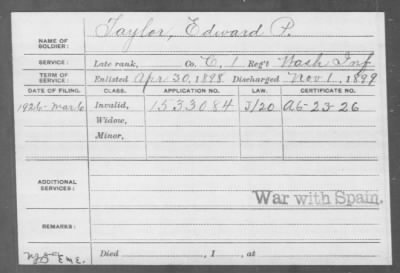 NAME OF SOLDIER: Taylor, Edward P.
SERVICE: Late rank, Co. C, 1 Reg't Wash Inf
TERM OF SERVICE: Enlisted Apr 30, 1898 Discharged Nov 1, 1899
DATE OF FILING. CLASS. APPLICATION NO. LAW. CERTIFICATE NO.
1926-Mar 6 Invalid, 1533084 J/20 A6-23-26
Widow,
Minor,
ADDITIONAL SERVICES:
War with Spain.
REMARKS:
Died , 1 , at